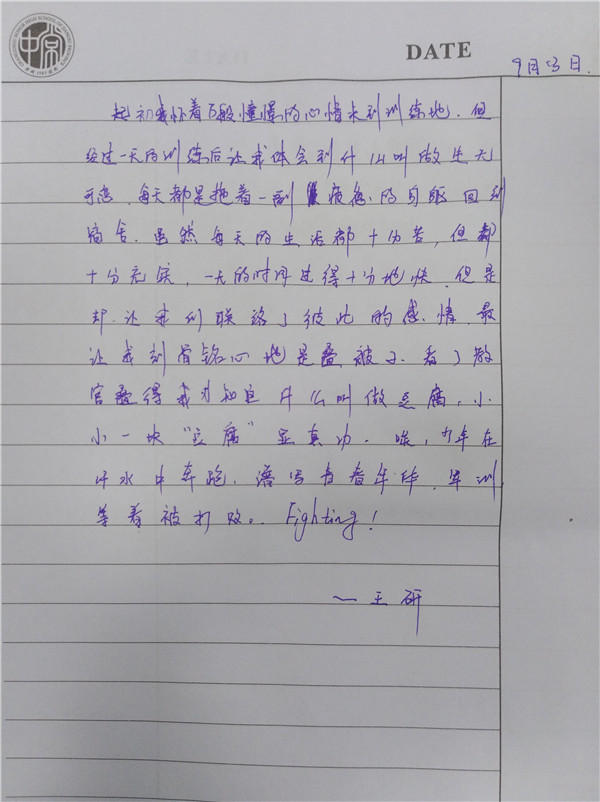 DATE
9月13日.
起初我怀着万般憧憬的心情来到训练地.但
经过一天的训练后让我体会到什么叫做生无
可恋,每天都是拖着一副疲惫的身躯回到
宿舍.虽然每天的生活都十分苦,但都
十分充实,一天的时间过得十分地快.但是
却让我们联络了彼此的感情.最
让我刻骨铭心地是叠被子.看了教
官叠得我才知道什么叫做豆腐,小
小一块"豆腐"显真功.少年在
汗水中奔跑,谱写青春年华.军训
等着被打败。Fighting!
一王研